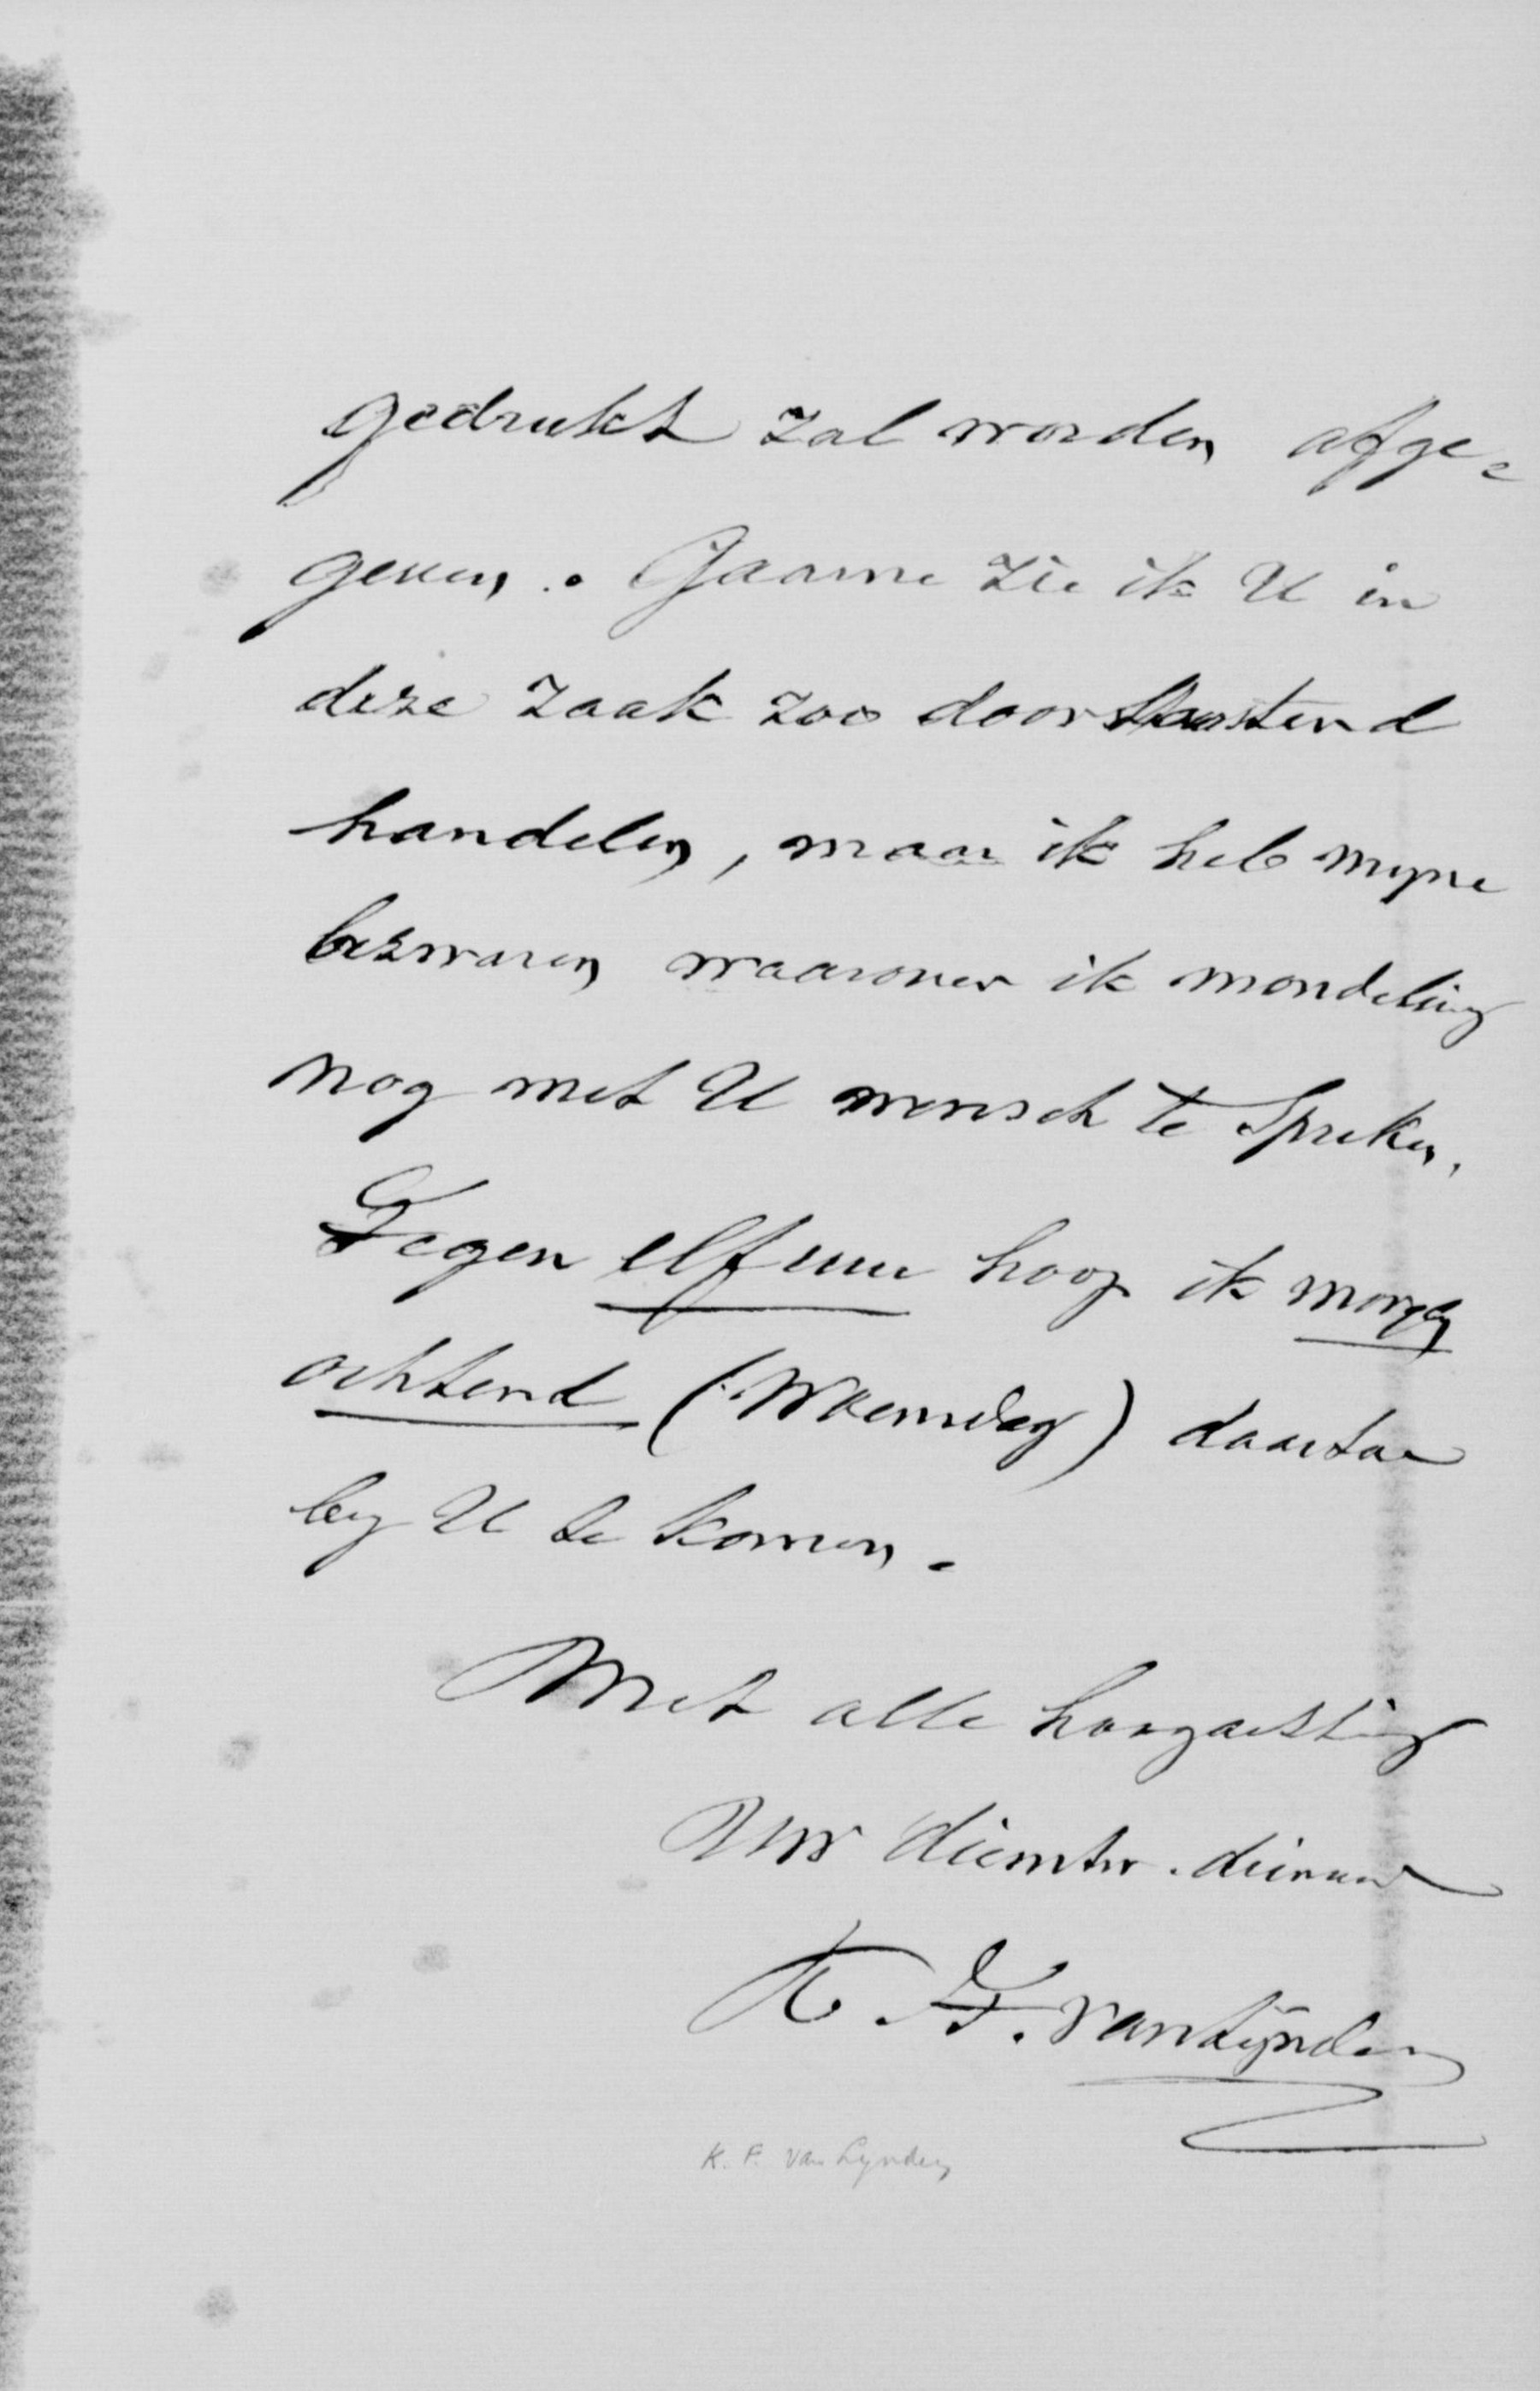 gedrukt zal worden afge=
geven. Gaarne zie ik U in
deze zaak zoo doortastend
handelen, maar ik heb myne
bezwaren waarover ik mondeling
nog met U wensch te spreken.
Tegen elf uur hoop ik morgen
ochtend (Woensdag) daartoe
by U te komen.
Met alle hoogachting
Uw dienstw. dienaar
K. F. van Lynden
K. F. van Lynden